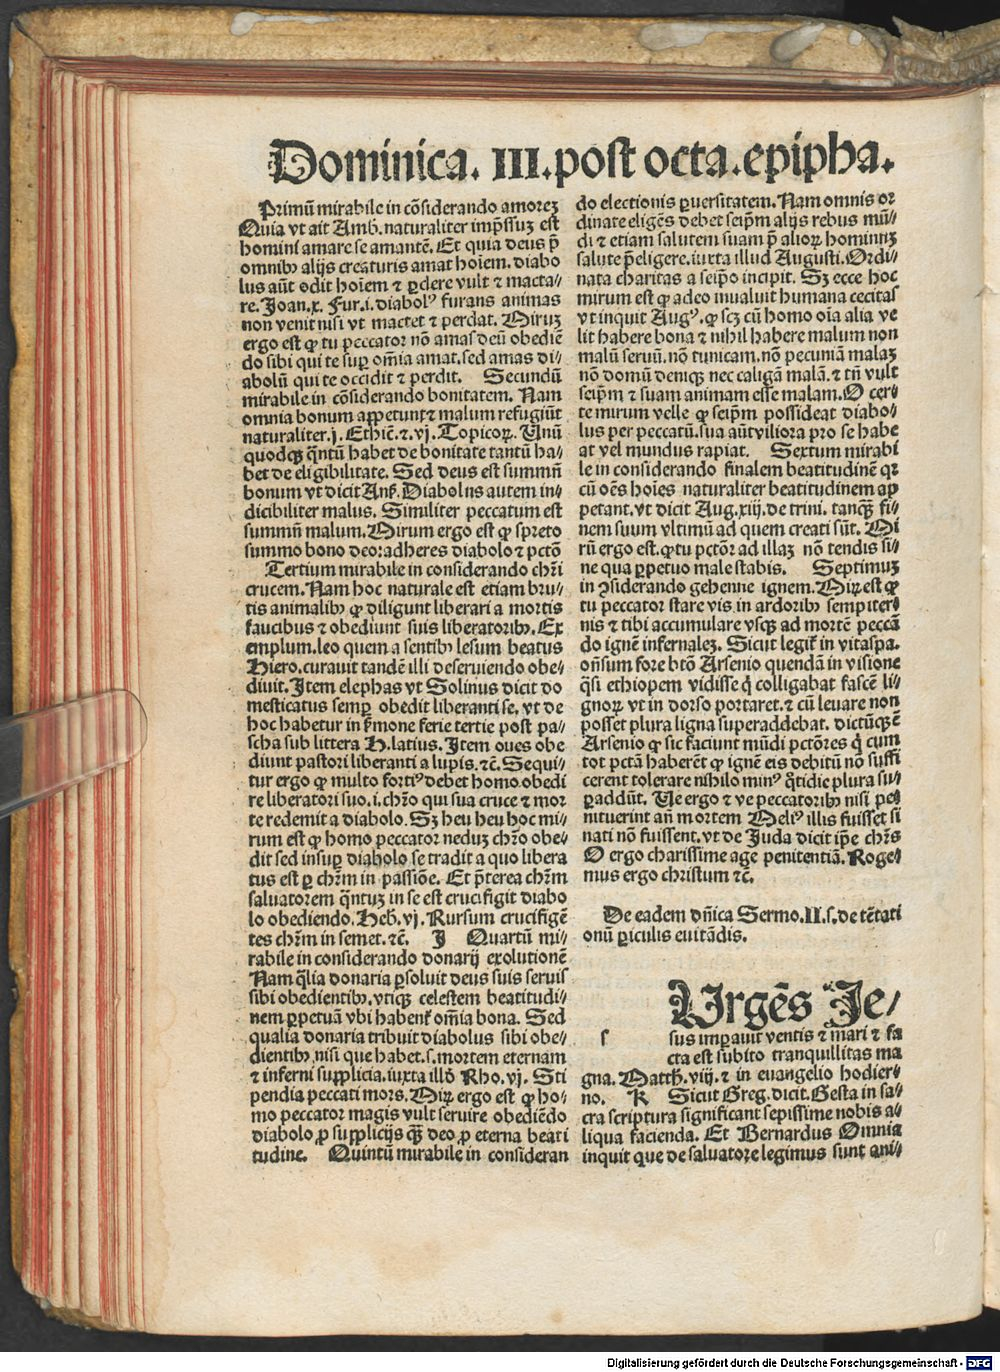 Dominica. III. post octa. epipha.
Primū mirabile in cōsiderando amoreꝫ
Quia vt ait Amb. naturaliter imp̄ssuꝫ est
homini amare se amantē. Et quia deus p̄
omnibꝰ alijs creaturis amat hoīem. diabo
lus aūt odit hoīem ⁊ ꝑdere vult ⁊ macta⸗
re. Joan. x. Fur .i. diabolꝰ furans animas
non venit nisi vt mactet ⁊ perdat. Miruꝫ
ergo est ꝙ tu peccator nō amas deū obediē
do sibi qui te suꝑ om̄ia amat. sed amas di⸗
abolū qui te occidit ⁊ perdit. Secundū
mirabile in cōsiderando bonitatem. Nam
omnia bonum appetunt ⁊ malum refugiūt
naturaliter. j. Ethic̄. ⁊. vj. Topicoꝝ. Unū
quodqꝫ q̄ntū habet de bonitate tantū ha⸗
bet de eligibilitate. Sed deus est summū
bonum vt dicit Ans̄. Diabolus autem in⸗
dicibiliter malus. Similiter peccatum est
summū malum. Mirum ergo est ꝙ spreto
summo bono deo: adheres diabolo ⁊ pctō
Tertium mirabile in considerando chr̄i
crucem. Nam hoc naturale est etiam bru⸗
tis animalibꝰ ꝙ diligunt liberari a mortis
faucibus ⁊ obediunt suis liberatoribꝰ. Ex
emplum. leo quem a sentibꝰ lesum beatus
Hiero. curauit tandē illi deseruiendo obe⸗
diuit. Item elephas vt Solinus dicit do
mesticatus semꝑ obedit liberanti se, vt de
hoc habetur in s̄mone ferie tertie post pa⸗
scha sub littera H. latius. Item oues obe
diunt pastori liberanti a lupis. ⁊c̄. Sequi⸗
tur ergo ꝙ multo fortiꝰ debet homo obedi
re liberatori suo .i. chr̄o qui sua cruce ⁊ mor
te redemit a diabolo. Sꝫ heu heu hoc mi⸗
rum est ꝙ homo peccator neduꝫ chr̄o obe⸗
dit sed insuꝑ diabolo se tradit a quo libera
tus est ꝑ chr̄m in passiōe. Et p̄terea chr̄m
saluatorem q̄ntuꝫ in se est crucifigit diabo
lo obediendo. Heb̄. vj. Rursum crucifigē
tes chr̄m in semet. ⁊c̄. J Quartū mi⸗
rabile in considerando donarij exolutionē
Nam q̄lia donaria ꝑsoluit deus suis seruis
sibi obedientibꝰ. vtiqꝫ celestem beatitudi⸗
nem ꝑpetuā vbi habent̄ om̄ia bona. Sed
qualia donaria tribuit diabolus sibi obe⸗
dientibꝰ. nisi que habet .s. mortem eternam
⁊ inferni supplicia. iuxta illō Rho. vj. Sti
pendia peccati mors. Miꝝ ergo est ꝙ ho⸗
mo peccator magis vult seruire obediēdo
diabolo ꝓ supplicijs qꝫ̄ deo ꝓ eterna beati
tudine. Quintū mirabile in consideran
do electionis ꝑuersitatem. Nam omnis or
dinate eligēs debet seip̄m alijs rebus mū⸗
di ⁊ etiam salutem suam p̄ alioꝝ hominuꝫ
salute p̄eligere. iuxta illud Augusti. Ordi⸗
nata charitas a seip̄o incipit. Sꝫ ecce hoc
mirum est ꝙ adeo inualuit humana cecitas
vt inquit Augꝰ. ꝙ scꝫ cū homo oīa alia ve
lit habere bona ⁊ nihil habere malum non
malū seruū. nō tunicam. nō pecuniā malaꝫ
nō domū deniqꝫ nec caligā malā. ⁊ tn̄ vult
seip̄m ⁊ suam animam esse malam. O cer⸗
te mirum velle ꝙ seip̄m possideat diabo⸗
lus per peccatū. sua aūt viliora pro se habe
at vel mundus rapiat. Sextum mirabi
le in considerando finalem beatitudinē qꝛ
cū oēs hoīes naturaliter beatitudinem ap
petant. vt dicit Aug. xiij. de trini. tanqꝫ̄ fi⸗
nem suum vltimū ad quem creati sūt. Mi
rū ergo est. ꝙ tu pctōr ad illaꝫ nō tendis si⸗
ne qua ꝑpetuo male stabis. Septimuꝫ
in ꝯsiderando gehenne ignem. Miꝝ est ꝙ
tu peccator stare vis in ardoribꝰ sempiter⸗
nis ⁊ tibi accumulare vsqꝫ ad mortē peccā
do ignē infernaleꝫ. Sicut legit̄ in vitaspa.
on̄sum fore btō Arsenio quendā in visione
q̄si ethiopem vidisse q̇ colligabat fascē li⸗
gnoꝝ vt in dorso portaret. ⁊ cū leuare non
posset plura ligna superaddebat. dictūqꝫ ē
Arsenio ꝙ sic faciunt mūdi pctōres q̇ cum
tot pctā haberēt ꝙ ignē eis debitū nō suffi
cerent tolerare nihilo minꝰ q̄tidie plura su⸗
ꝑaddūt. Ue ergo ⁊ ve peccatoribꝰ nisi pe⸗
nituerint an̄ mortem Meliꝰ illis fuisset si
nati nō fuissent. vt de Juda dicit ip̄e chr̄s
O ergo charissime age penitentiā. Roge⸗
mus ergo christum ⁊c̄.
De eadem dn̄ica Sermo. II. s. de tētati
onū ꝑiculis euitādis.
Urgēs Je⸗
s sus imꝑauit ventis ⁊ mari ⁊ fa
cta est subito tranquillitas ma
gna. Matth̄. viij. ⁊ in euangelio hodier⸗
no. K Sicut Greg. dicit. Gesta in sa⸗
cra scriptura significant sepissime nobis a⸗
liqua facienda. Et Bernardus Omnia
inquit que de saluatore legimus sunt ani⸗
Digitalisierung gefördert durch die Deutsche Forschungsgemeinschaft - DFG